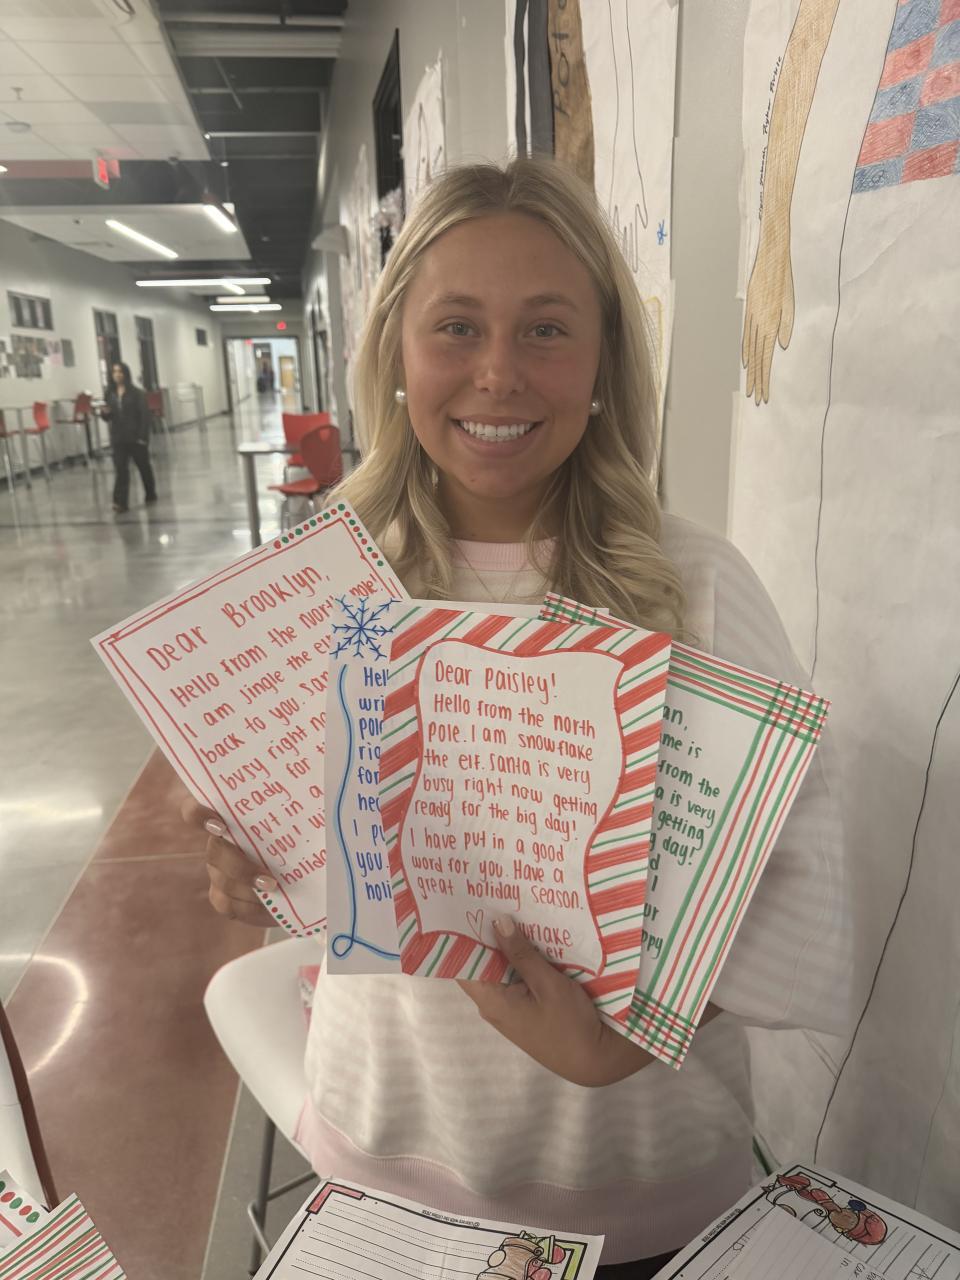 Dear Brooklyn,
Hello from the North Pole!
I am jingle the elf
back to you. San
busy right no
ready for t
put in a
you! wi
holida
Hel
wri
pol
rig
for
hea
I pu
you.
holi
Dear Paisley!
Hello from the north
pole. I am snowflake
the elf. Santa is very
busy right now getting
ready for the big day!
I have put in a good
word for you. Have a
great holiday season.
snowflake
elf
an,
me is
from the
a is very
getting
g day!
d
I
ur
ppy